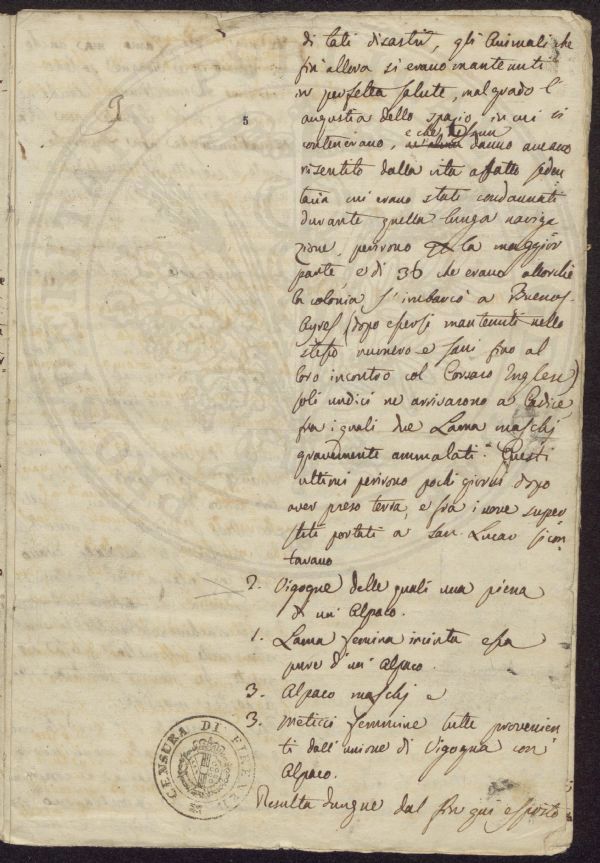 di tali disastri, gli Animali che
fin'allora si erano mantenuti
in perfetta salute, malgrado l'
angustia dello spazio, in cui si
contenevano, e che nessun danno aveano
risentito dalla vita affatto seden
taria cui erano stati condannati
durante quella lunga naviga
zione, perirono la maggior
parte, e di 36 che erano allorchè
la colonia s'imbarcò a Buenos-
Ayres (dopo essersi mantenuti nello
stesso numero e sani fino al
loro incontro col Corsaro Inglese)
soli undici ne arrivarono a Cadice
fra i quali due Lama maschj
gravemente ammalati. Questi
ultimi perirono pochi giorni dopo
aver preso terra, e fra i nove super
stiti portati a San Lucar si con
tavano
2. Vigogne delle quali una piena
di un' Alpaco.
1. Lama femina incinta essa
pure d'un' Alpaco.
3. Alpaco maschj e
3. Meticci femmine tutte provenien
ti dall'unione di Vigogna con
Alpaco.
Resulta dunque dal fin qui esposto
5
CENSURA DI FIRENZE